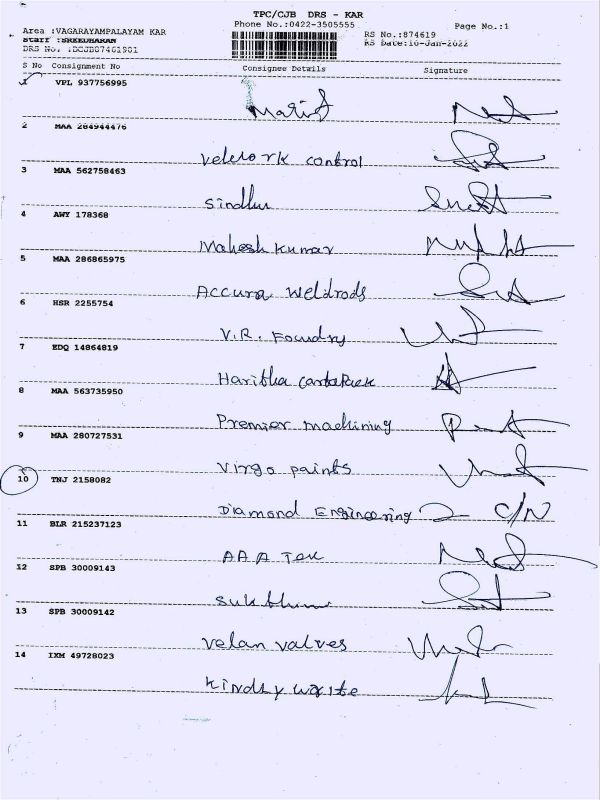 TPC/CJB DRS - KAR
Phone No.:0422-3505555
Page No.:1
Area :VAGARAYAMPALAYAM KAR
RS No.:874619
Staff :SREEDHARAN
RS Date:10-Jan-2022
S No Consignment No Consignee Details Signature
1 VPL 937756995
2 MAA 284944476
Velwork control
3 MAA 562758463
Sindhu
4 AWY 178368
Mahesh Kumar
5 MAA 286865975
Accura Weldrods
6 HSR 2255754
V.R. Foundry
7 EDQ 14864819
Haritha
8 MAA 563735950
Premier machining
9 MAA 280727531
Virgo paints
10 TNJ 2158082
Diamond Engineering C/N
11 BLR 215237123
AAA Tex
12 SPB 30009143
13 SPB 30009142
Velan valves
14 IXM 49728023